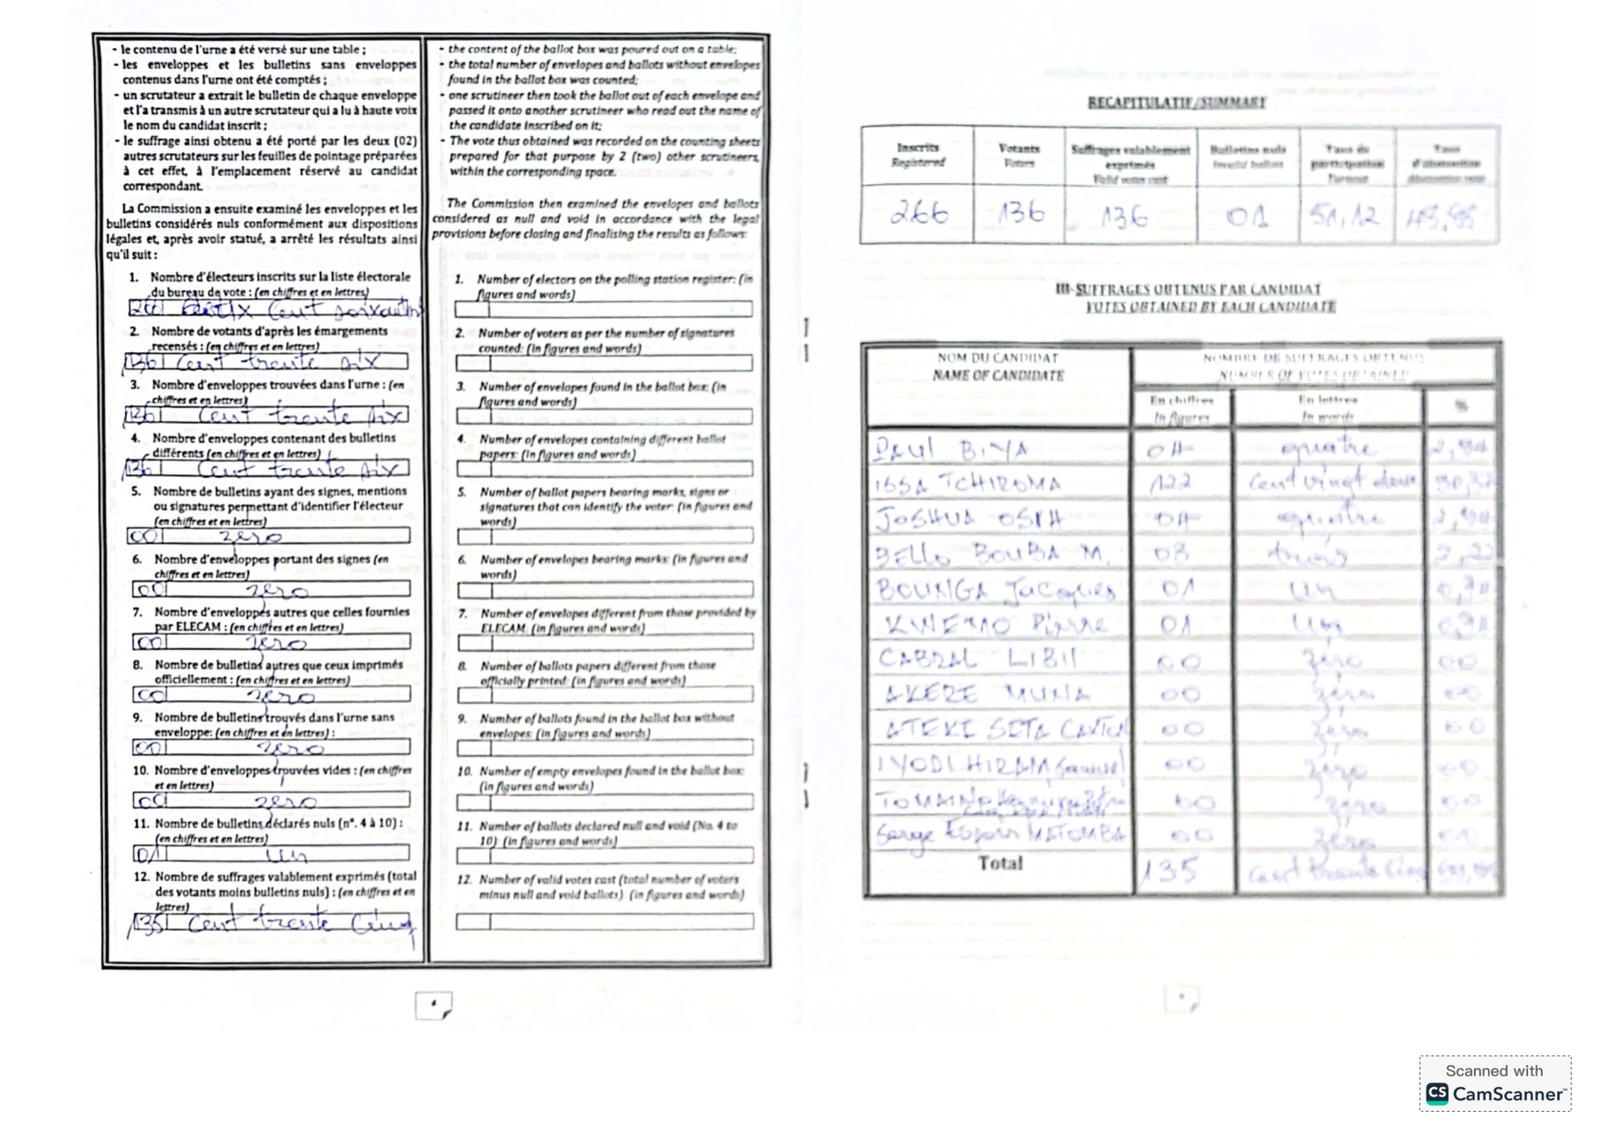 - le contenu de l'urne a été versé sur une table ;
- les enveloppes et les bulletins sans enveloppes
contenus dans l'urne ont été comptés ;
- un scrutateur a extrait le bulletin de chaque enveloppe
et l'a transmis à un autre scrutateur qui a lu à haute voix
le nom du candidat inscrit ;
- le suffrage ainsi obtenu a été porté par les deux (02)
autres scrutateurs sur les feuilles de pointage préparées
à cet effet, à l'emplacement réservé au candidat
correspondant.
La Commission a ensuite examiné les enveloppes et les
bulletins considérés nuls conformément aux dispositions
légales et, après avoir statué, a arrêté les résultats ainsi
qu'il suit :
1. Nombre d'électeurs inscrits sur la liste électorale
du bureau de vote : (en chiffres et en lettres)
266 Cent soixante
2. Nombre de votants d'après les émargements
recensés : (en chiffres et en lettres)
136 Cent trente six
3. Nombre d'enveloppes trouvées dans l'urne : (en
chiffres et en lettres)
136 Cent trente six
4. Nombre d'enveloppes contenant des bulletins
différents (en chiffres et en lettres)
136 Cent trente six
5. Nombre de bulletins ayant des signes, mentions
ou signatures permettant d'identifier l'électeur
(en chiffres et en lettres)
00 zero
6. Nombre d'enveloppes portant des signes (en
chiffres et en lettres)
00 zero
7. Nombre d'enveloppes autres que celles fournies
par ELECAM : (en chiffres et en lettres)
00 zero
8. Nombre de bulletins autres que ceux imprimés
officiellement : (en chiffres et en lettres)
00 zero
9. Nombre de bulletins trouvés dans l'urne sans
enveloppe: (en chiffres et en lettres) :
00 zero
10. Nombre d'enveloppes trouvées vides : (en chiffres
et en lettres)
00 zero
11. Nombre de bulletins déclarés nuls (n°. 4 à 10) :
(en chiffres et en lettres)
01 un
12. Nombre de suffrages valablement exprimés (total
des votants moins bulletins nuls) : (en chiffres et en
lettres)
135 Cent trente Cinq
- the content of the ballot box was poured out on a table;
- the total number of envelopes and ballots without envelopes
found in the ballot box was counted;
- one scrutineer then took the ballot out of each envelope and
passed it onto another scrutineer who read out the name of
the candidate inscribed on it;
- The vote thus obtained was recorded on the counting sheets
prepared for that purpose by 2 (two) other scrutineers,
within the corresponding space.
The Commission then examined the envelopes and ballots
considered as null and void in accordance with the legal
provisions before closing and finalising the results as follows:
1. Number of electors on the polling station register: (in
figures and words)
2. Number of voters as per the number of signatures
counted: (in figures and words)
3. Number of envelopes found in the ballot box: (in
figures and words)
4. Number of envelopes containing different ballot
papers: (in figures and words)
5. Number of ballot papers bearing marks, signs or
signatures that can identify the voter: (in figures and
words)
6. Number of envelopes bearing marks: (in figures and
words)
7. Number of envelopes different from those provided by
ELECAM: (in figures and words)
8. Number of ballots papers different from those
officially printed: (in figures and words)
9. Number of ballots found in the ballot box without
envelopes: (in figures and words)
10. Number of empty envelopes found in the ballot box:
(in figures and words)
11. Number of ballots declared null and void (No. 4 to
10): (in figures and words)
12. Number of valid votes cast (total number of voters
minus null and void ballots): (in figures and words)
RECAPITULATIF/SUMMARY
Inscrits Votants Suffrages valablement exprimés Bulletins nuls Taux de participation Taux d'abstention
Registered Voters Valid votes cast Invalid ballots Turnout
266 136 136 01 51,12
III-SUFFRAGES OBTENUS PAR CANDIDAT
VOTES OBTAINED BY EACH CANDIDATE
NOM DU CANDIDAT NOMBRE DE SUFFRAGES OBTENUS
NAME OF CANDIDATE NUMBER OF VOTES OBTAINED
En chiffres En lettres %
In figures In words
PAUL BIYA 04 quatre 2,94
ISSA TCHIROMA 122 Cent vingt deux
JOSHUA OSIH 04 quatre 2,94
BELLO BOUBA M. 03 trois 2,22
BOUNGA Jacques 01 un 0,74
KWEMO Pierre 01 un 0,74
CABRAL LIBII 00 zéro 00
AKERE MUNA 00 zéro 00
ATEKE SETA CAXTON 00 zéro 00
IYODI HIRAM Samuel 00 zéro 00
TOMAINO 00 zéro 00
Serge Espoir MATOMBA 00 zéro 00
Total 135 Cent trente Cinq
Scanned with
CS CamScanner